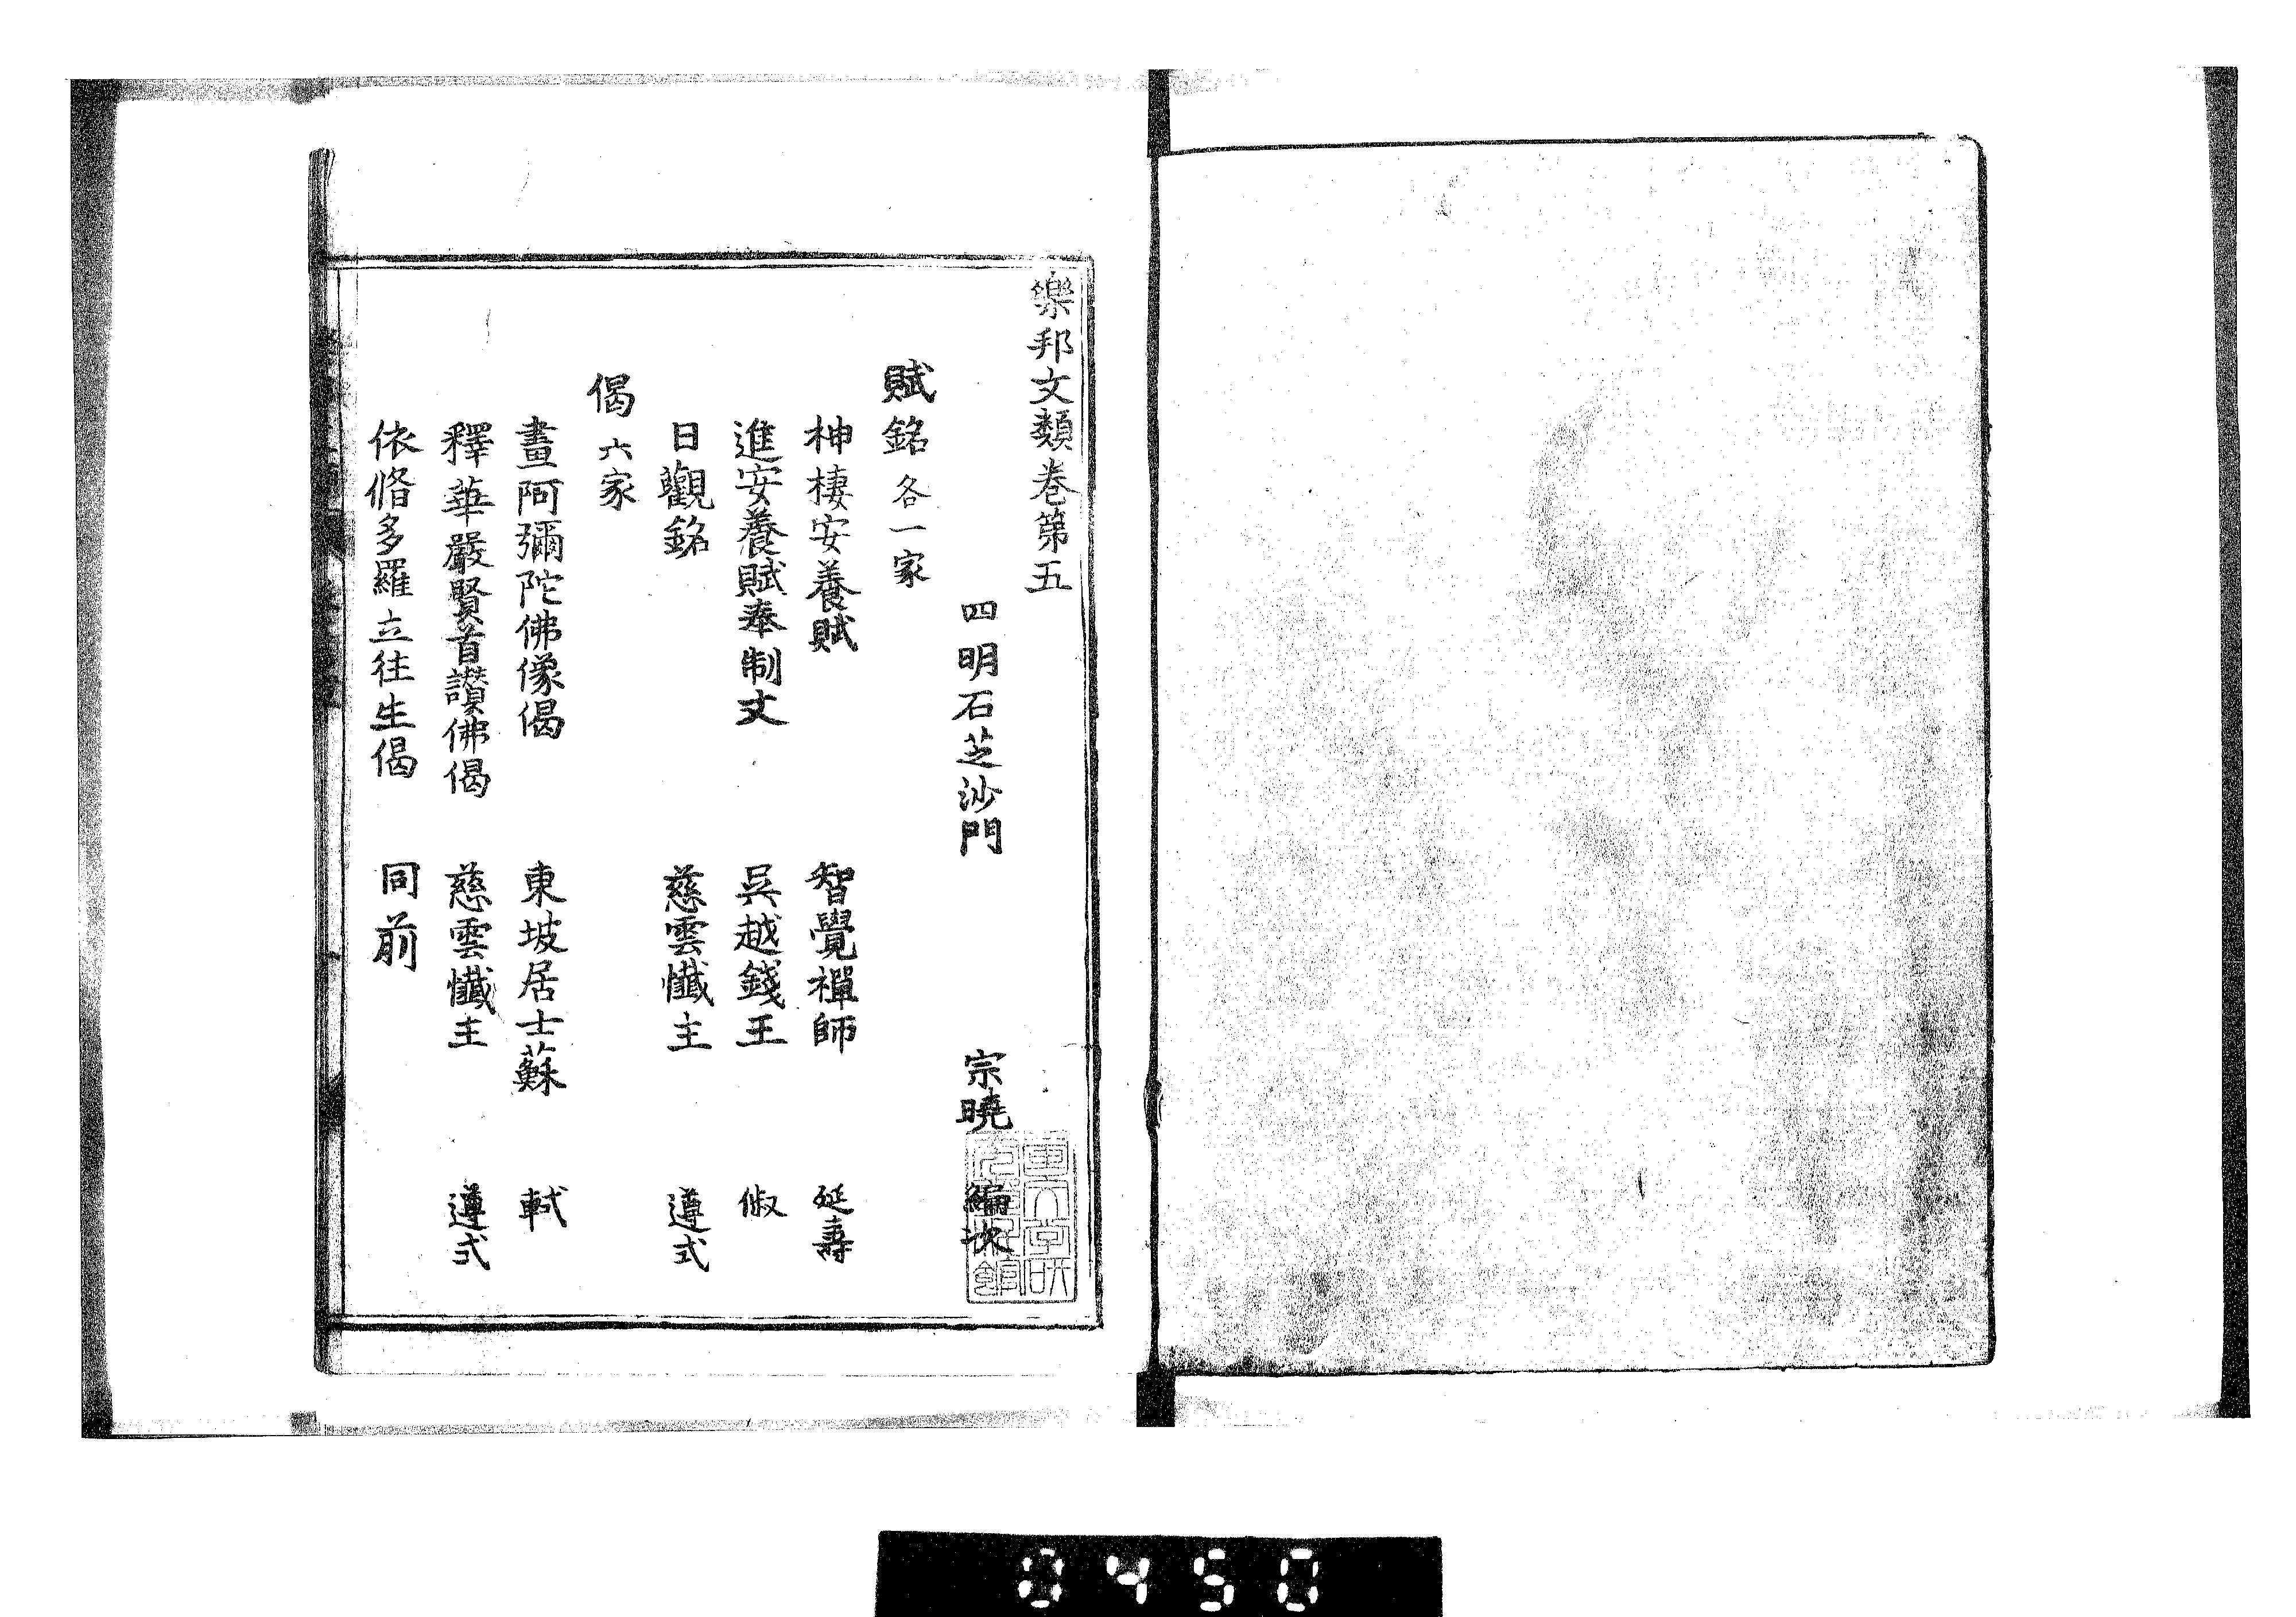 樂邦文類卷第五
四明石芝沙門 宗曉 編次
賦銘 各一家
神棲安養賦 智覺禪師 延壽
進安養賦奉制文 吳越錢王 俶
日觀銘 慈雲懺主 遵式
偈 六家
畫阿彌陀佛像偈 東坡居士蘇 軾
釋華嚴賢首讚佛偈 慈雲懺主 遵式
依脩多羅立往生偈 同前
0450